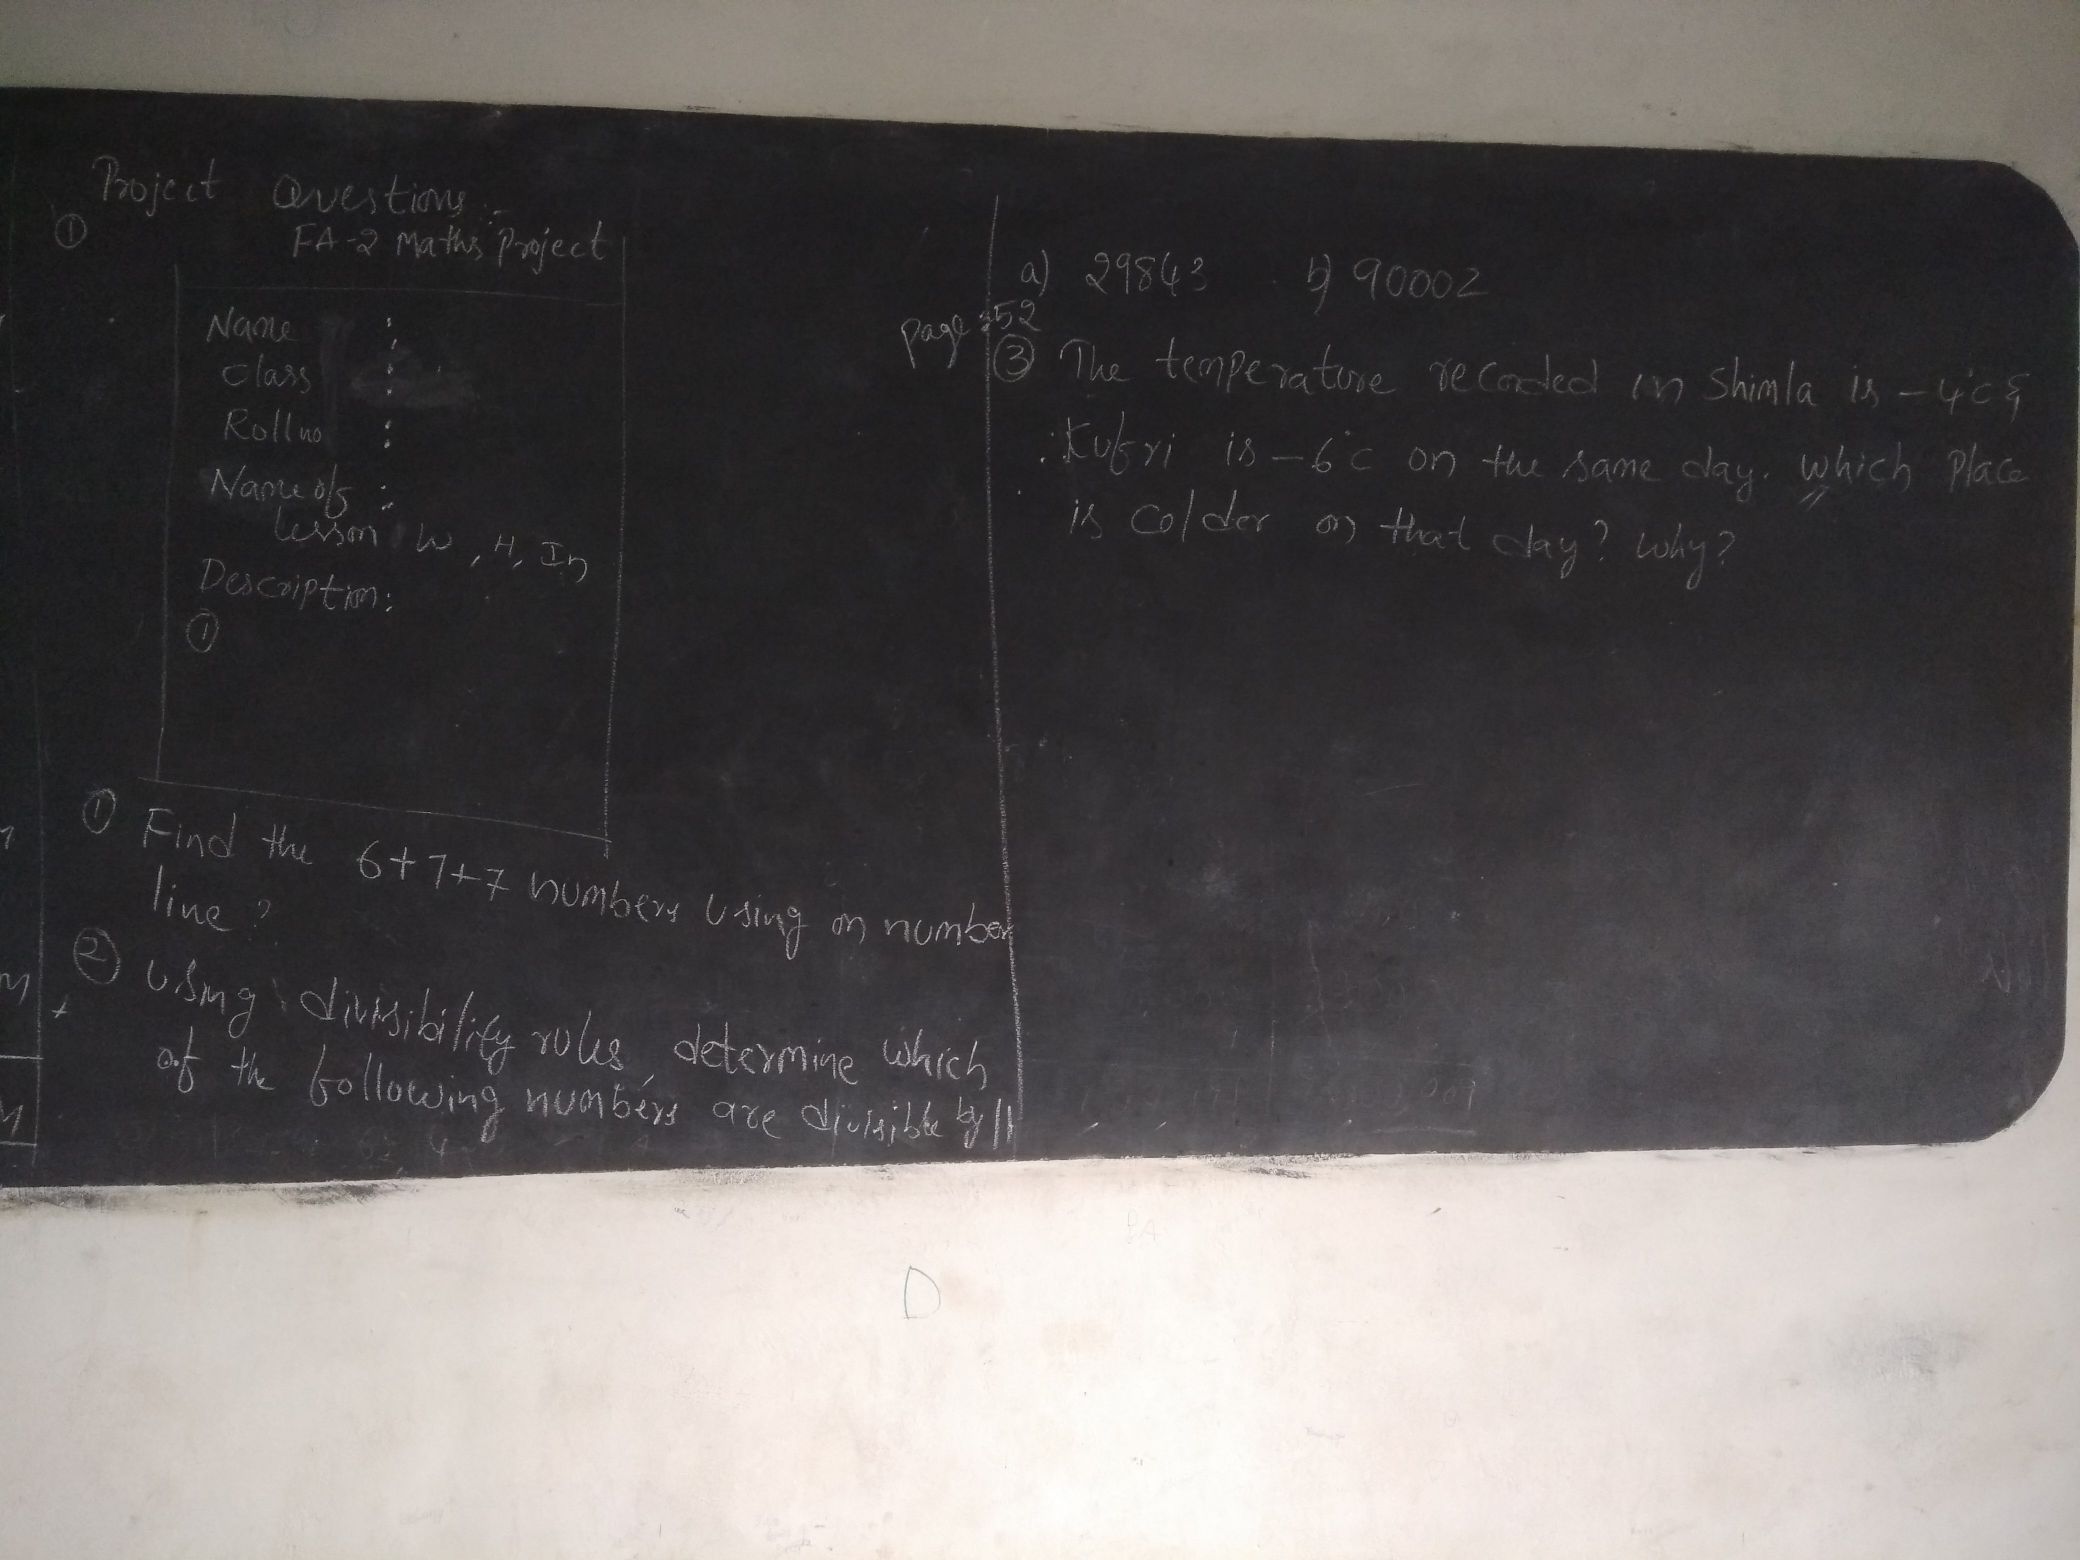 Project Questions :-
①
FA-2 Maths Project
Name :
Class :
Roll no :
Name of :
Lesson W, H, In
Description:
①
① Find the 6+7+7 numbers using on number
line ?
② Using divisibility rules, determine which
of the following numbers are divisible by 11
a) 29843 b) 90002
page : 52
③ The temperature recorded in Shimla is -4°c &
Kufri is -6°c on the same day. Which place
is colder on that day? Why?
D